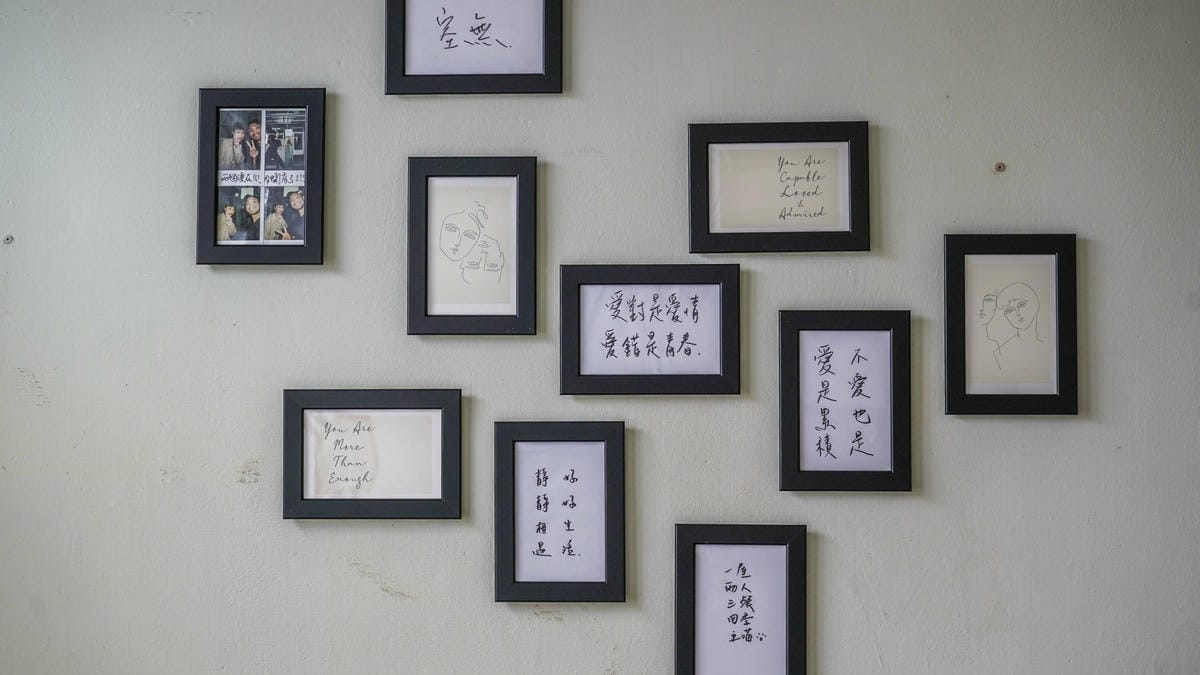 空無.
You Are
Capable
Loved
&
Admired
愛對是愛情
愛錯是青春.
愛是累積
不愛也是
You Are
More
Than
Enough
靜靜相遇
好好生活.
一屋
兩人
三餐
四季
五喵